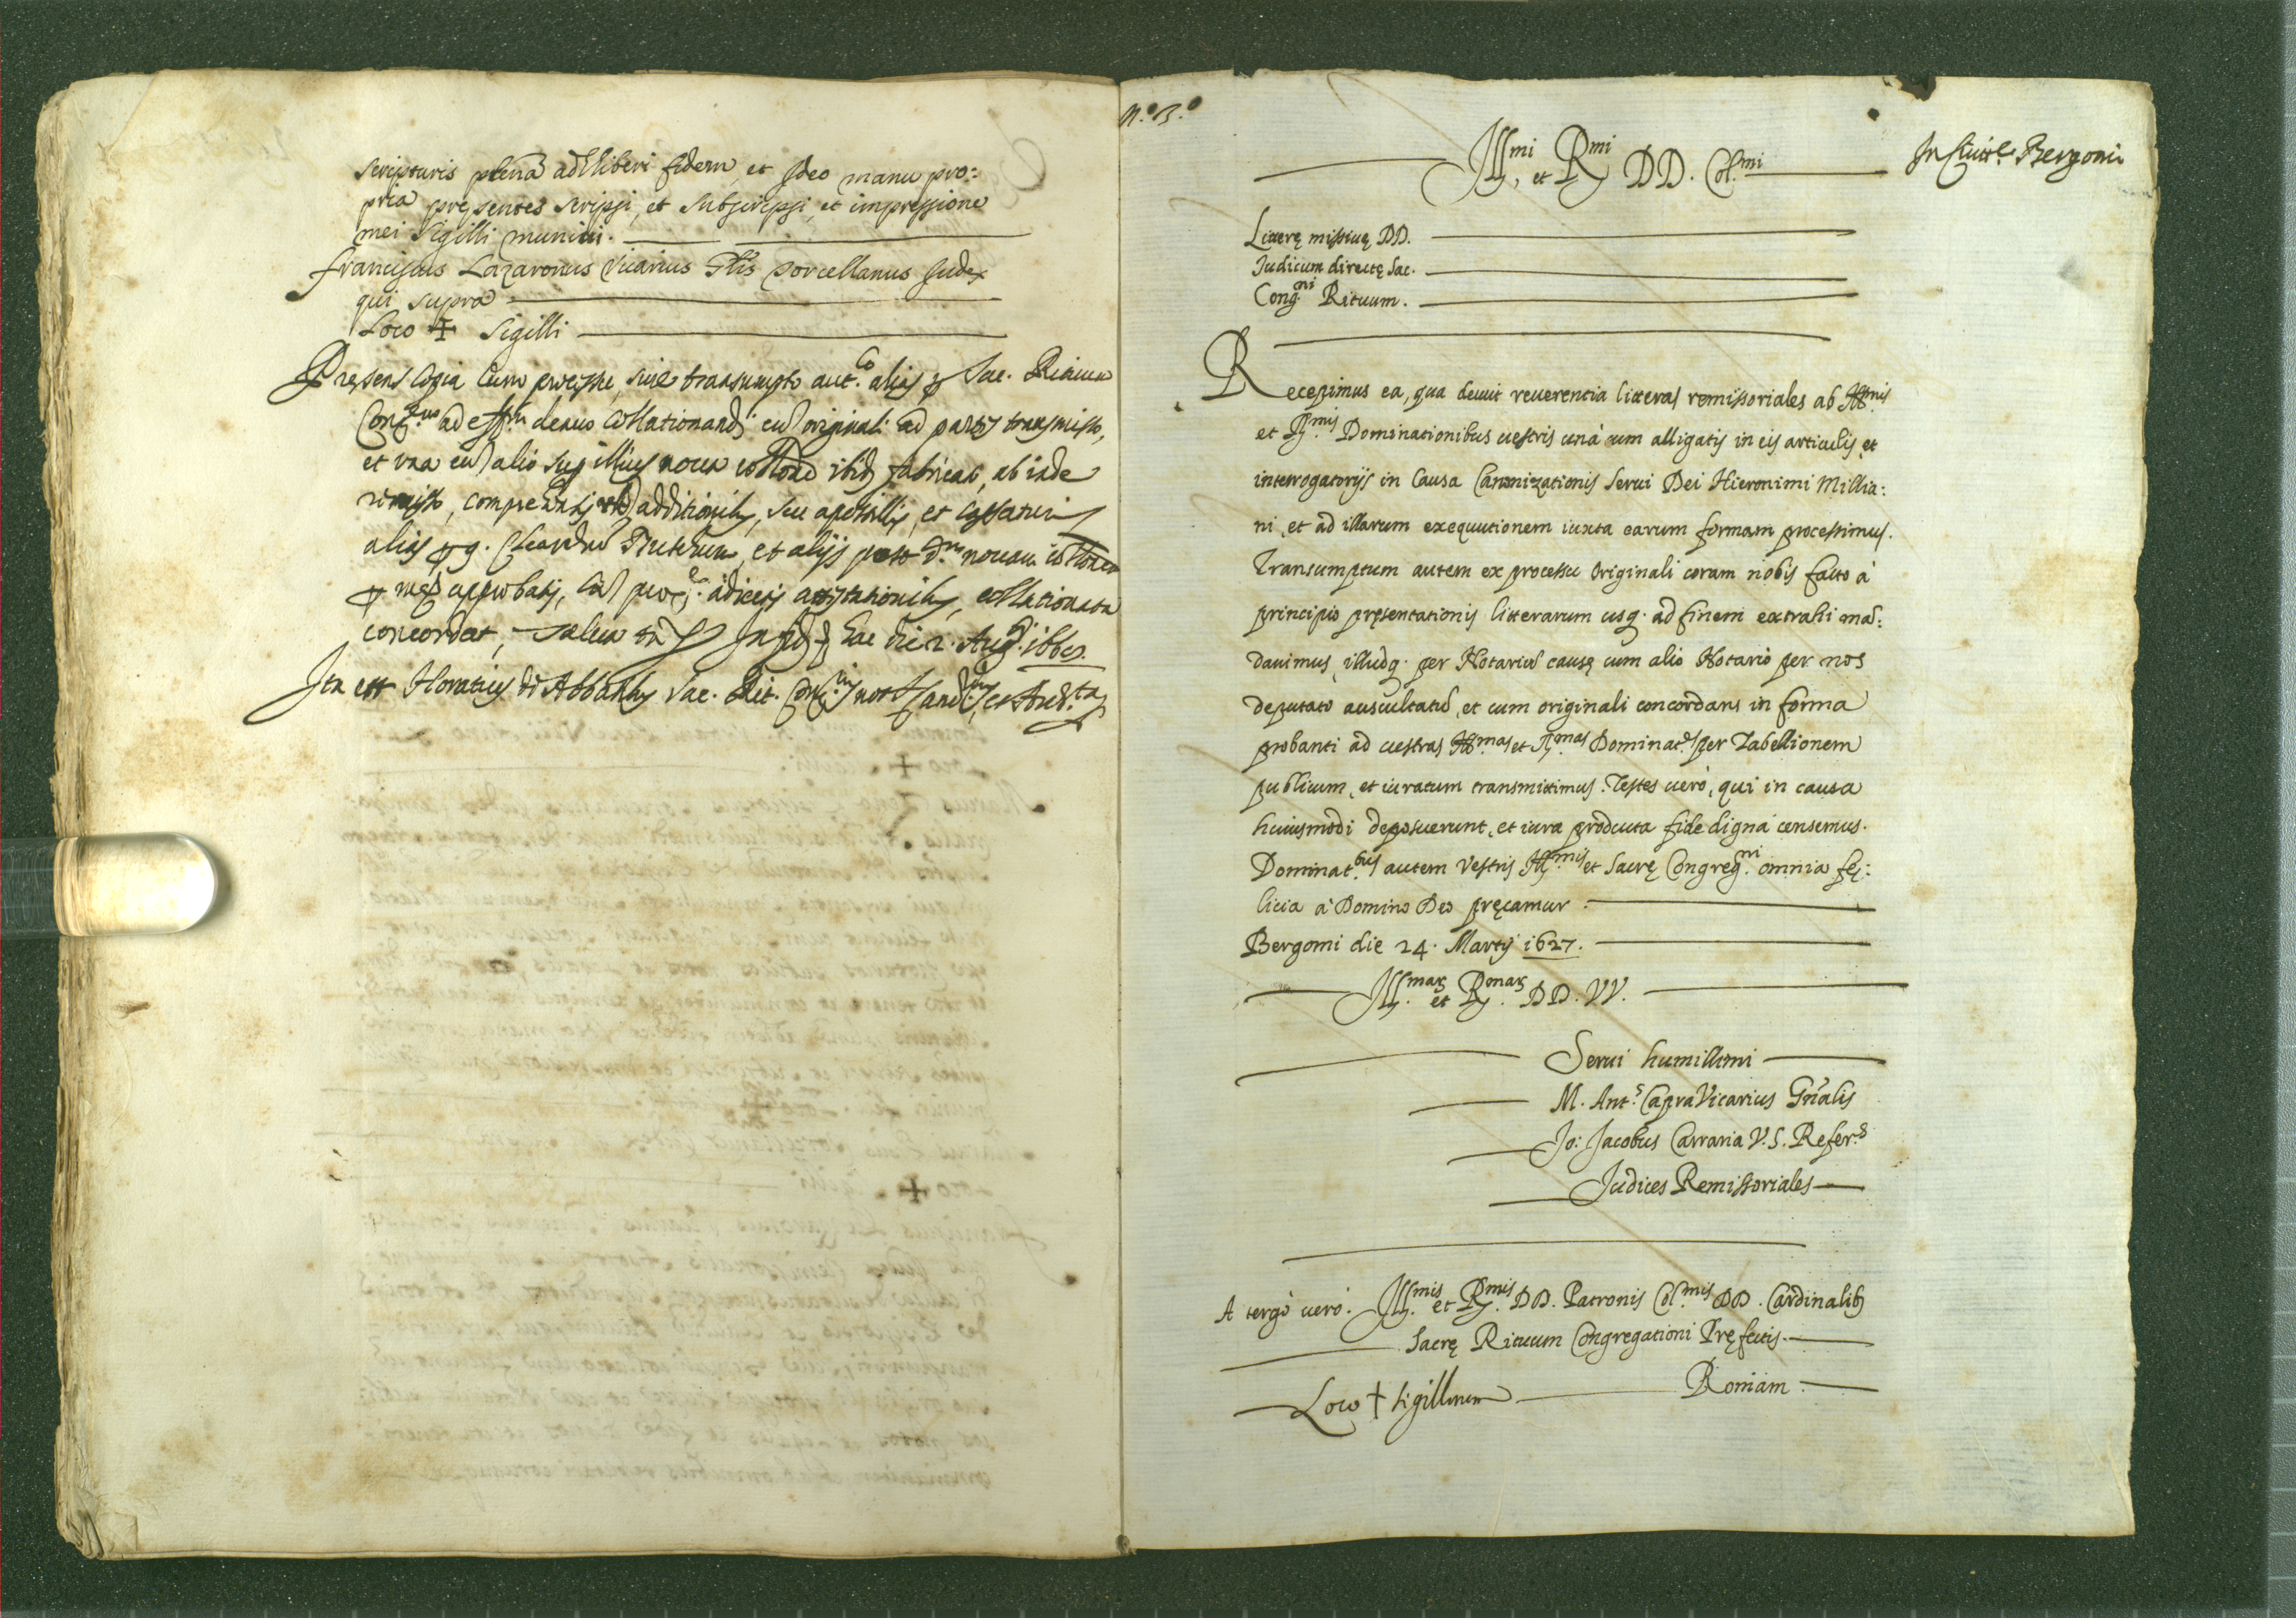 scripturis plena adhiberi fidem, et Ideo manu pro:
pria presentes scripsi, et subscripsi, et impressione
mei Sigilli muniui.
Franciscus Lazaronus Vicarius Glis Porcellanus Judex
qui supra
Loco + Sigilli
Presens Copia cum processu, siue transumpto aut.co alias p Sac. Rituum
Cong.ne ad eff.m denuo collationandi cu originali ad partes transmisso,
et una cu alio sup illius noua collone ibid fabricato, ab inde
remisso, additionib, seu apostillis, et
alias p q. et alijs post d.m nouam collonem
p me approbatis, collationata
concordat, salua In fid hac die 2. Aug.ti 166
Ita est Horatius de Abbatib Sac. Rit. Cong.nis not
N.o B.o
Ill.mi, et R.mi DD. Col.mi
In Ciuit.e Bergomi
Litterę missiuę DD.
Judicum directę Sac.
Cong.ni Rituum.
Recepimus ea, qua decuit reuerentia litteras remissoriales ab Ill.mis
et R.mis Dominationibus uestris unà cum alligatis in eis articulis, et
interrogatorijs in Causa Canonizationis Serui Dei Hieronimi Millia:
ni, et ad illarum exequutionem iuxta earum formam processimus.
Transumptum autem ex processu Originali coram nobis facto à
principio pręsentationis litterarum usq. ad finem extrahi man:
dauimus, illudq. per Notariu causę cum alio Notario per nos
deputato auscultatu, et cum originali concordans in forma
probanti ad uestras Ill.mas et R.mas Dominat.s per Tabellionem
publicum, et iuratum transmittimus. Testes uerò, qui in causa
huiusmodi deposuerunt, et iura producta fide digna censemus.
Dominat.bus autem Vestris Ill.mis et Sacrę Congreg.ni omnia fę:
licia à Domino Deo pręcamur.
Bergomi die 24. Martij 1627.
Ill.mar et R.mar DD. VV.
Serui humillimi
M. Ant.s Capra Vicarius Gnalis
Jo: Jacobus Carraria V.S. Refer.s
Judices Remissoriales
A tergo uerò. Ill.mis et R.mis DD. Patronis Col.mis DD. Cardinalib
Sacrę Rituum Congregationi Pręfectis.
Romam.
Loco + Sigillorum